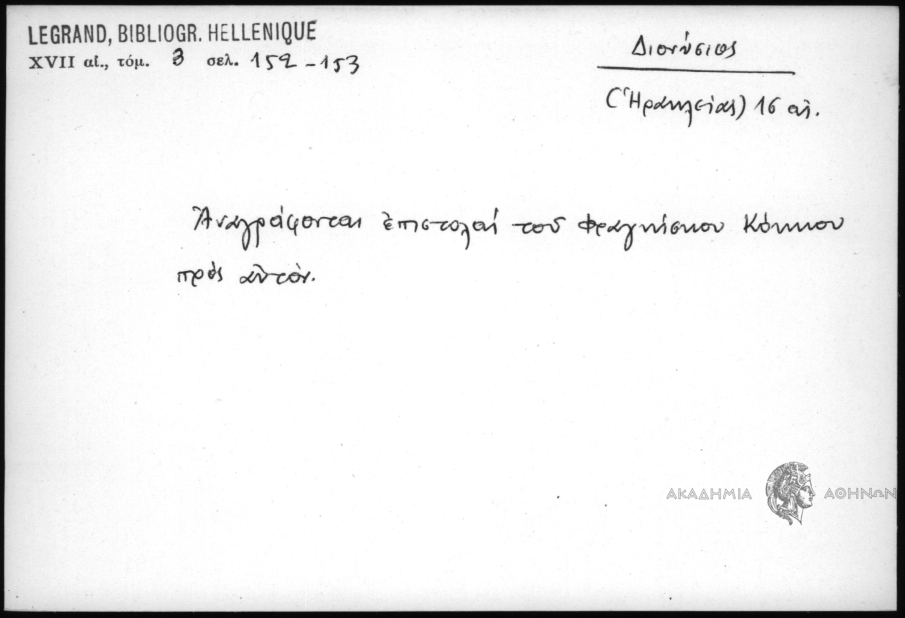 LEGRAND, BIBLIOGR. HELLENIQUE
XVII αἰ., τόμ. 3 σελ. 152-153
Διονύσιος
(Ἡρακλείας) 16 αἰ.
Ἀναγράφονται ἐπιστολαί τοῦ Φραγκίσκου Κόκκου
πρὸς αὐτόν.
ΑΚΑΔΗΜΙΑ ΑΘΗΝΩΝ